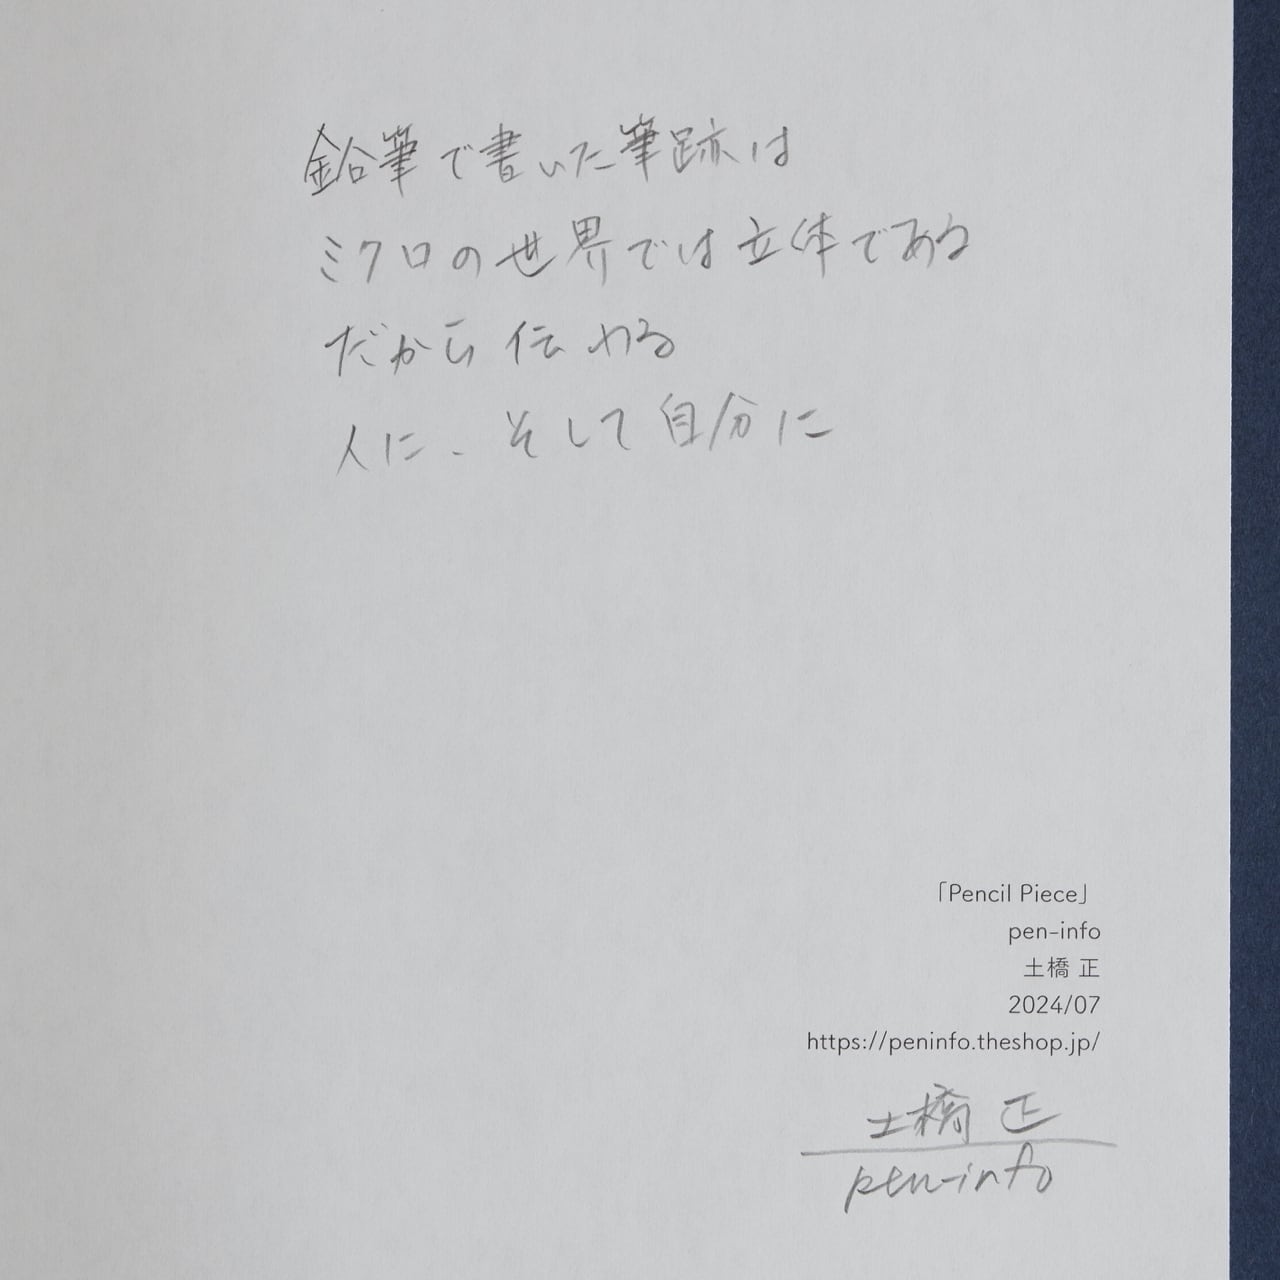 鉛筆で書いた筆跡は
ミクロの世界では立体である
だから伝わる
人に、そして自分に
「Pencil Piece」
pen-info
土橋 正
2024/07
https://peninfo.theshop.jp/
土橋 正
pen-info